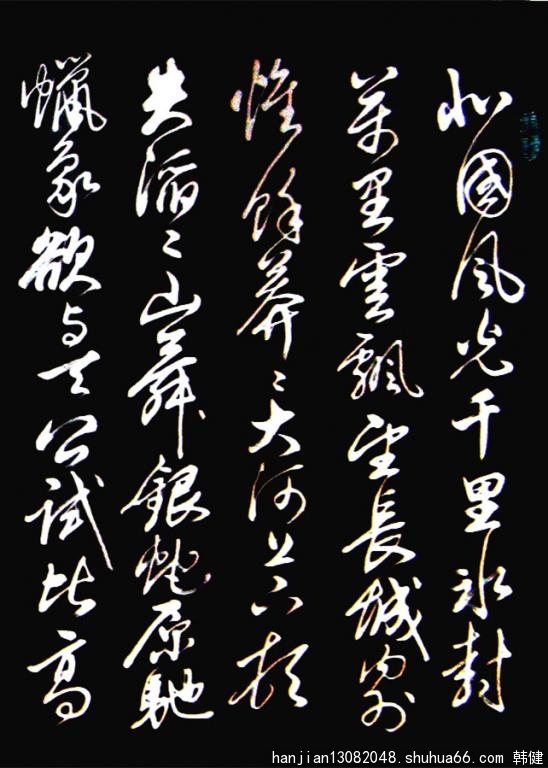 北國風光千里冰封
萬里雪飄望長城內外
惟餘莽〻大河上下頓
失滔〻山舞銀蛇原馳
蠟象欲与天公試比高
hanjian13082048.shuhua66.com 韩健